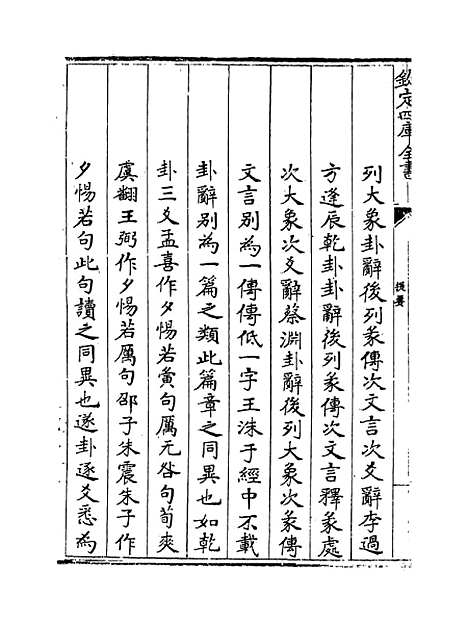 欽定四庫全書
提要
列大象卦辭後列彖傳次文言次爻辭李過
方逢辰乾卦卦辭後列彖傳次文言釋彖處
次大象次爻辭蔡淵卦辭後列大象次彖傳
文言别為一傳傳低一字王洙于經中不載
卦辭别為一篇之類此篇章之同異也如乾
卦三爻孟喜作夕惕若夤句厲无咎句荀爽
虞翻王弼作夕惕若厲句邵子朱震朱子作
夕惕若句此句讀之同異也遂卦逐爻悉為